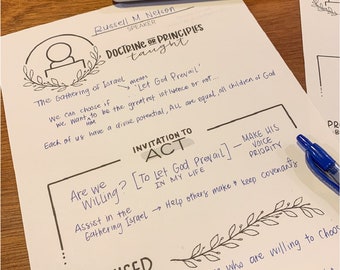 Russell M Nelson
SPEAKER
DOCTRINE OR PRINCIPLES
taught
The Gathering of Israel means "Let God Prevail"
We can choose if
we want to be the greatest instance or not...
Each of us have a divine potential, ALL are equal, all children of God
INVITATION TO
ACT
Are we
Willing? [To Let God Prevail]
IN MY LIFE
MAKE HIS
VOICE
PRIORITY
Assist in the
Gathering Israel → Help others make & keep covenants
PR
BL
ISED
who are willing to choose